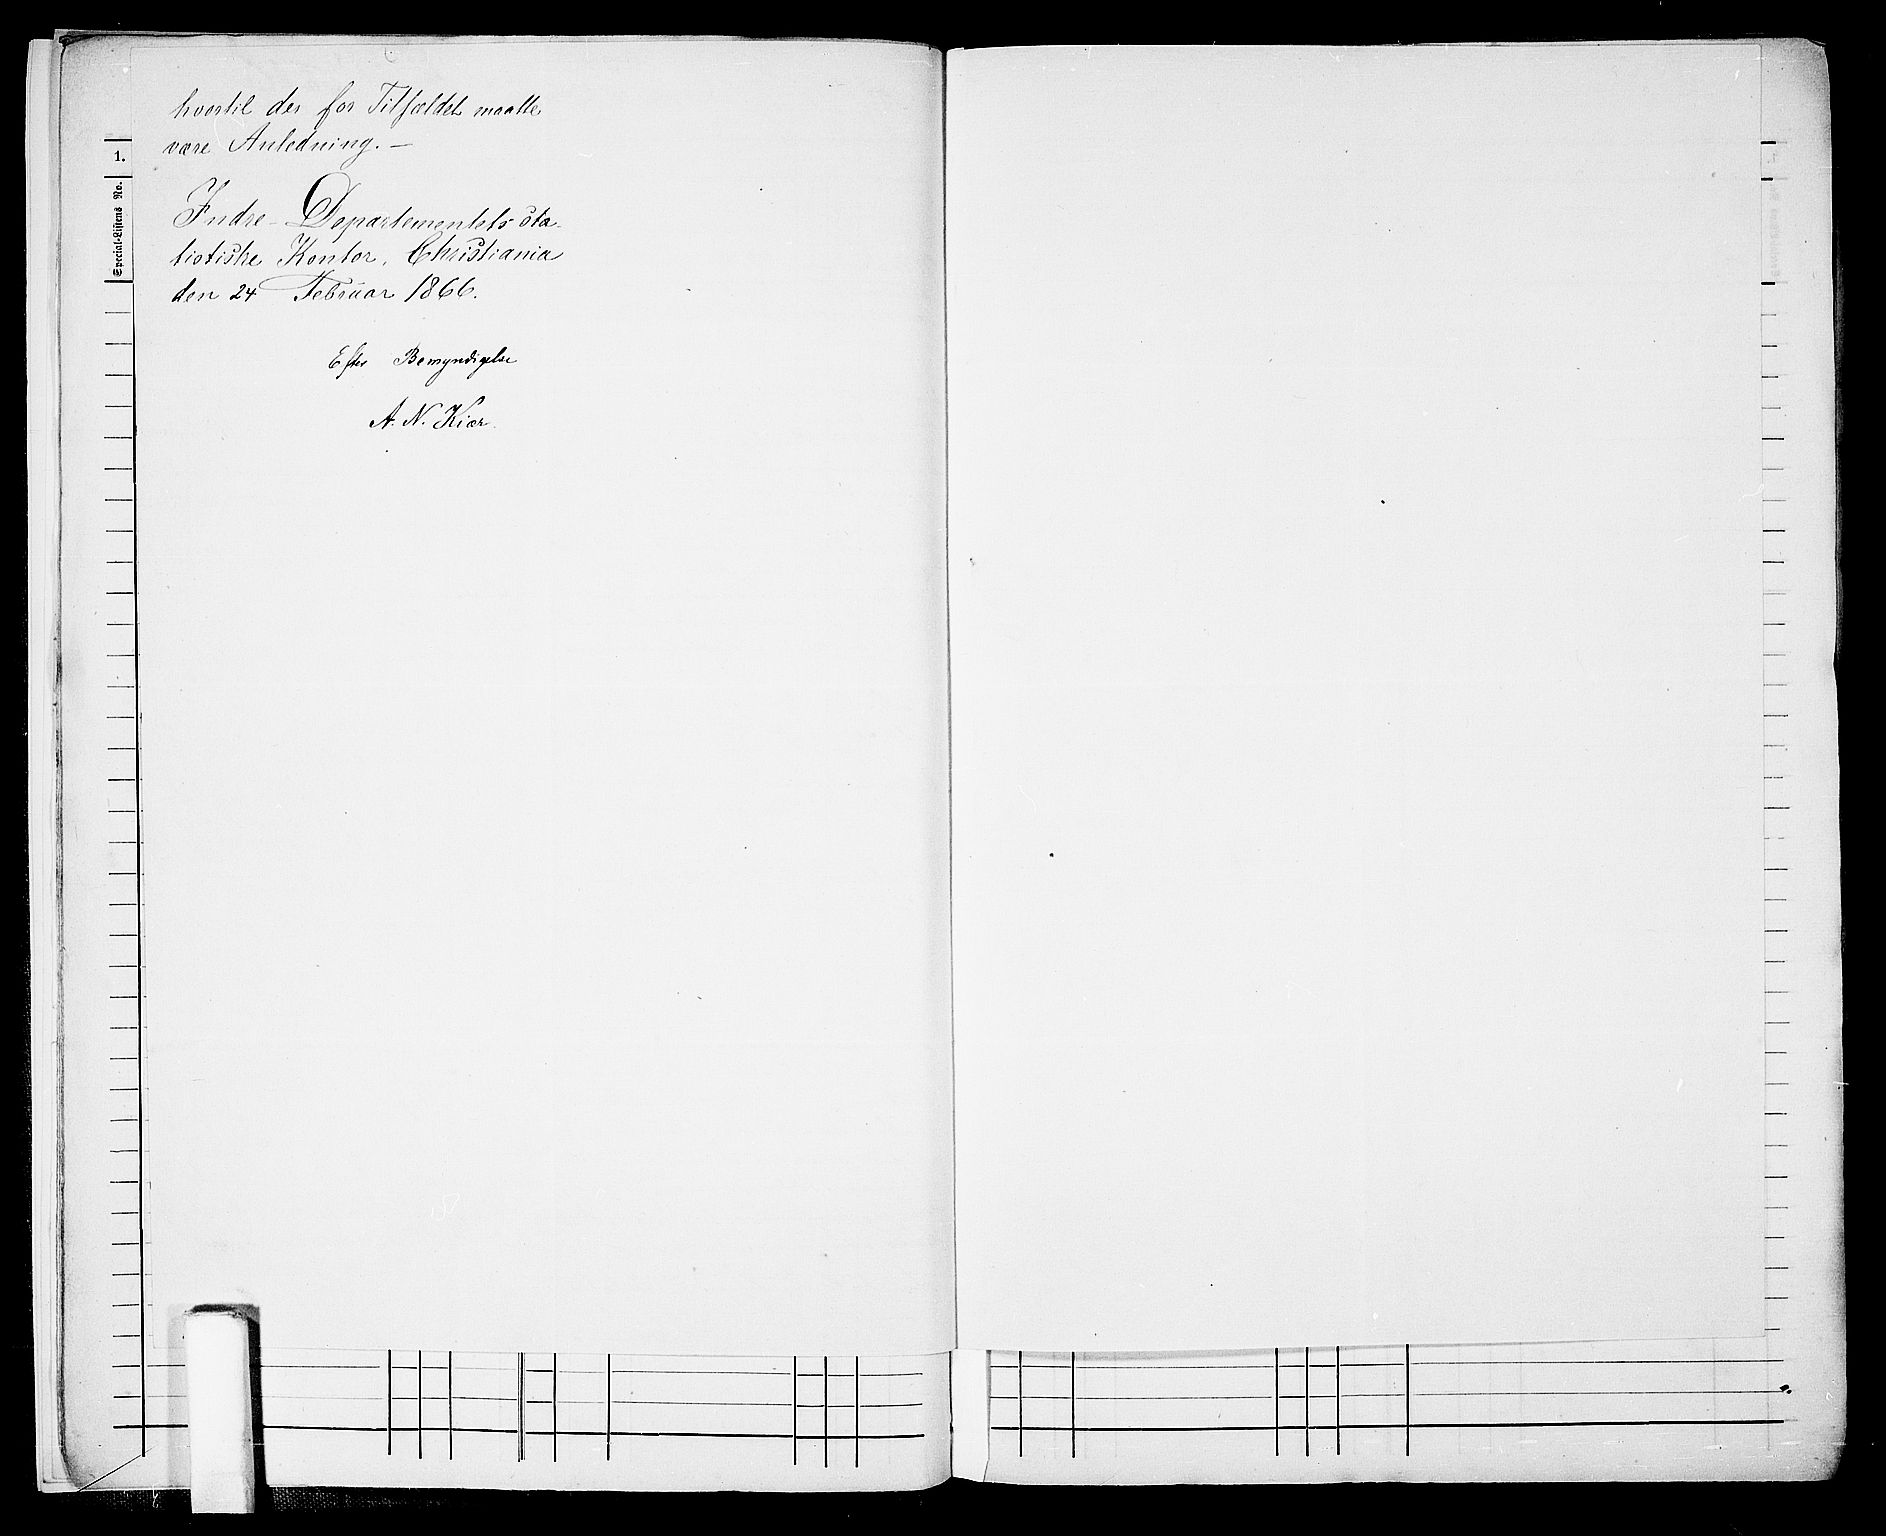 hvortil der for Tilfældet maatte
være Anledning. —
Indre-Departementets sta-
tistiske Kontor, Christiania
den 24 Februar 1866.
Efter Bemyndigelse
A. N. Kiær.
1.
Special-Listens No.